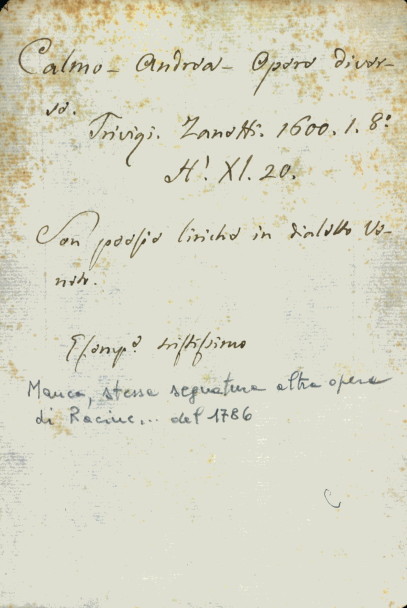 Calmo - Andrea - Opere diver-
se.
Trivigi. Zanetti. 1600. 1. 8º
H! XI. 20.
Son poesie liriche in dialetto Ve-
neto.
Esempº tristissimo
Manca, stessa segnatura altra opera
di Racine... del 1786